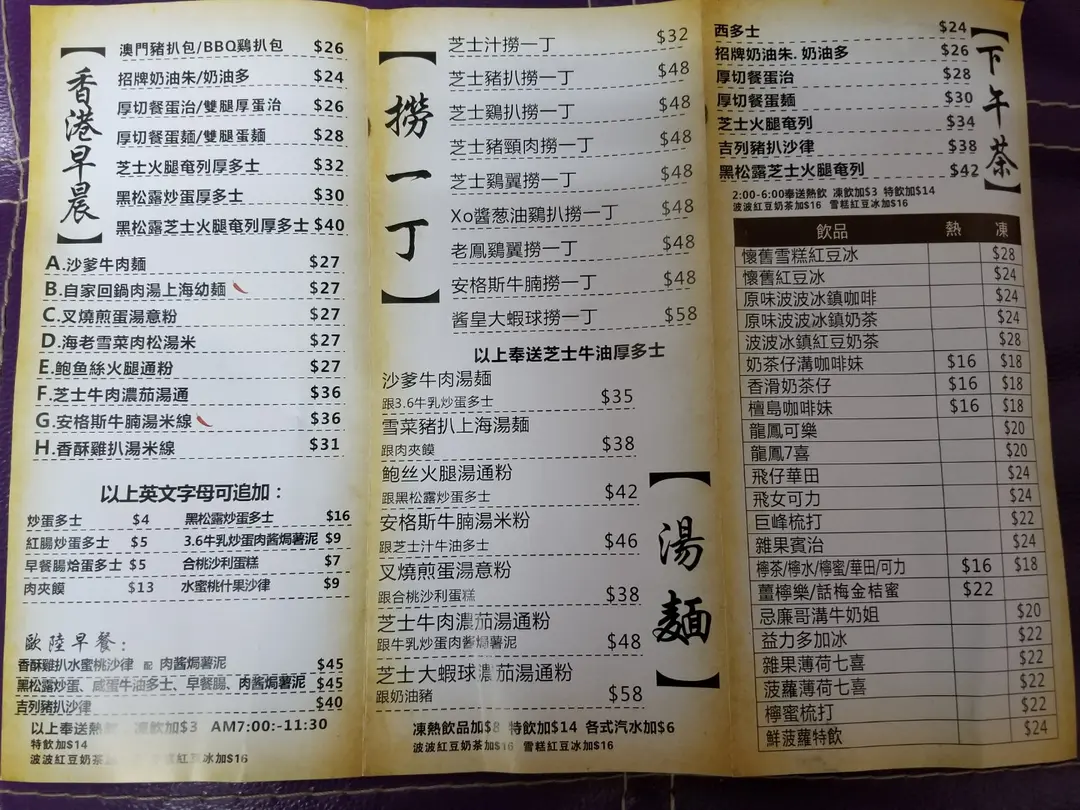 【香港早晨】
澳門豬扒包/BBQ鷄扒包 $26
招牌奶油朱/奶油多 $24
厚切餐蛋治/雙腿厚蛋治 $26
厚切餐蛋麵/雙腿蛋麵 $28
芝士火腿奄列厚多士 $32
黑松露炒蛋厚多士 $30
黑松露芝士火腿奄列厚多士 $40
A.沙爹牛肉麵 $27
B.自家回鍋肉湯上海幼麵 $27
C.叉燒煎蛋湯意粉 $27
D.海老雪菜肉松湯米 $27
E.鮑鱼絲火腿通粉 $27
F.芝士牛肉濃茄湯通 $36
G.安格斯牛腩湯米線 $36
H.香酥雞扒湯米線 $31
以上英文字母可追加：
炒蛋多士 $4 黑松露炒蛋多士 $16
紅腸炒蛋多士 $5 3.6牛乳炒蛋肉酱焗薯泥 $9
早餐腸烚蛋多士 $5 合桃沙利蛋糕 $7
肉夾饃 $13 水蜜桃什果沙律 $9
歐陸早餐：
香酥雞扒水蜜桃沙律 配 肉酱焗薯泥 $45
黑松露炒蛋、咸蛋牛油多士、早餐腸、肉酱焗薯泥 $45
吉列豬扒沙律 $40
以上奉送熱 凍飲加$3 AM7:00:-11:30
特飲加$14
波波紅豆奶茶加 紅豆冰加$16
【撈一丁】
芝士汁撈一丁 $32
芝士豬扒撈一丁 $48
芝士鷄扒撈一丁 $48
芝士豬頸肉撈一丁 $48
芝士鷄翼撈一丁 $48
Xo醬葱油鷄扒撈一丁 $48
老鳳鷄翼撈一丁 $48
安格斯牛腩撈一丁 $48
酱皇大蝦球撈一丁 $58
以上奉送芝士牛油厚多士
【湯麵】
沙爹牛肉湯麵
跟3.6牛乳炒蛋多士 $35
雪菜豬扒上海湯麵
跟肉夾饃 $38
鮑丝火腿湯通粉
跟黑松露炒蛋多士 $42
安格斯牛腩湯米粉
跟芝士汁牛油多士 $46
叉燒煎蛋湯意粉
跟合桃沙利蛋糕 $38
芝士牛肉濃茄湯通粉
跟牛乳炒蛋肉酱焗薯泥 $48
芝士大蝦球濃茄湯通粉
跟奶油豬 $58
凍熱飲品加$8 特飲加$14 各式汽水加$6
波波紅豆奶茶加$16 雪糕紅豆冰加$16
【下午茶】
西多士 $24
招牌奶油朱.奶油多 $26
厚切餐蛋治 $28
厚切餐蛋麵 $30
芝士火腿奄列 $34
吉列豬扒沙律 $38
黑松露芝士火腿奄列 $42
2:00-6:00奉送熱飲 凍飲加$3 特飲加$14
波波紅豆奶茶加$16 雪糕紅豆冰加$16
飲品 熱 凍
懷舊雪糕紅豆冰 $28
懷舊紅豆冰 $24
原味波波冰鎮咖啡 $24
原味波波冰鎮奶茶 $24
波波冰鎮紅豆奶茶 $28
奶茶仔溝咖啡妹 $16 $18
香滑奶茶仔 $16 $18
檀島咖啡妹 $16 $18
龍鳳可樂 $20
龍鳳7喜 $20
飛仔華田 $24
飛女可力 $24
巨峰梳打 $22
雜果賓治 $24
檸茶/檸水/檸蜜/華田/可力 $16 $18
薑檸樂/話梅金桔蜜 $22
忌廉哥溝牛奶姐 $20
益力多加冰 $22
雜果薄荷七喜 $22
菠蘿薄荷七喜 $22
檸蜜梳打 $22
鮮菠蘿特飲 $24